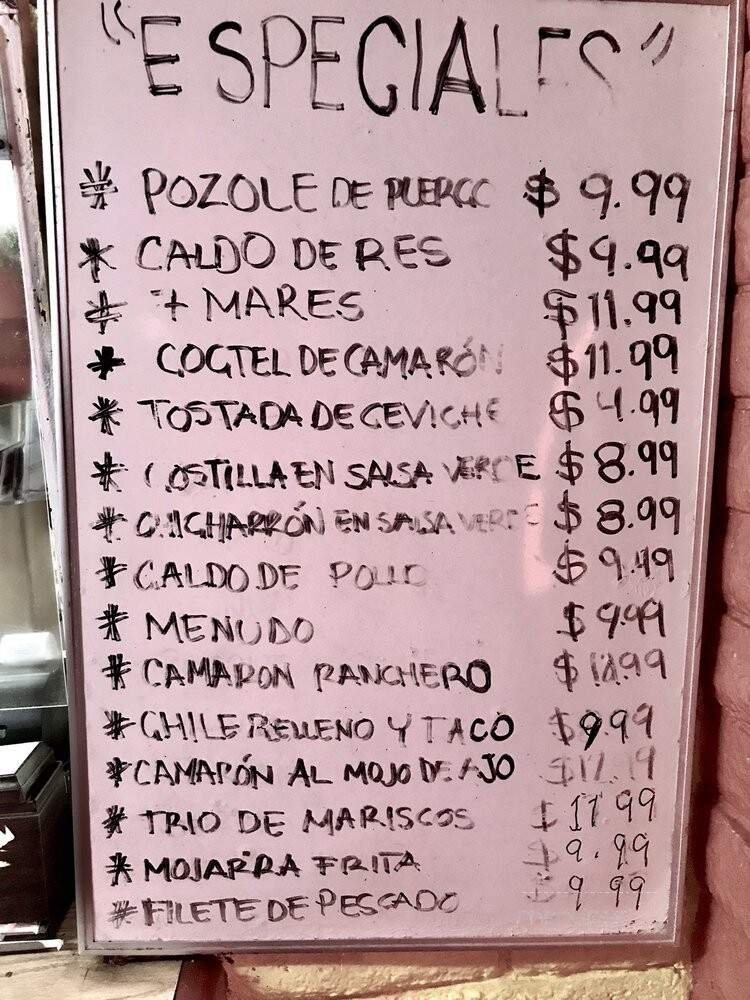 "ESPECIALES"
* POZOLE DE PUERCO $ 9.99
* CALDO DE RES $9.99
* 7 MARES $11.99
* COCTEL DE CAMARÓN $11.99
* TOSTADA DE CEVICHE $4.99
* COSTILLA EN SALSA VERDE $8.99
* CHICHARRÓN EN SALSA VERDE $8.99
* CALDO DE POLLO $9.99
* MENUDO $9.99
* CAMARON RANCHERO
* CHILE RELLENO Y TACO $9.99
* CAMARÓN AL MOJO DE AJO
* TRIO DE MARISCOS $ 11 99
* MOJARRA FRITA $9.99
* FILETE DE PESCADO $9 99